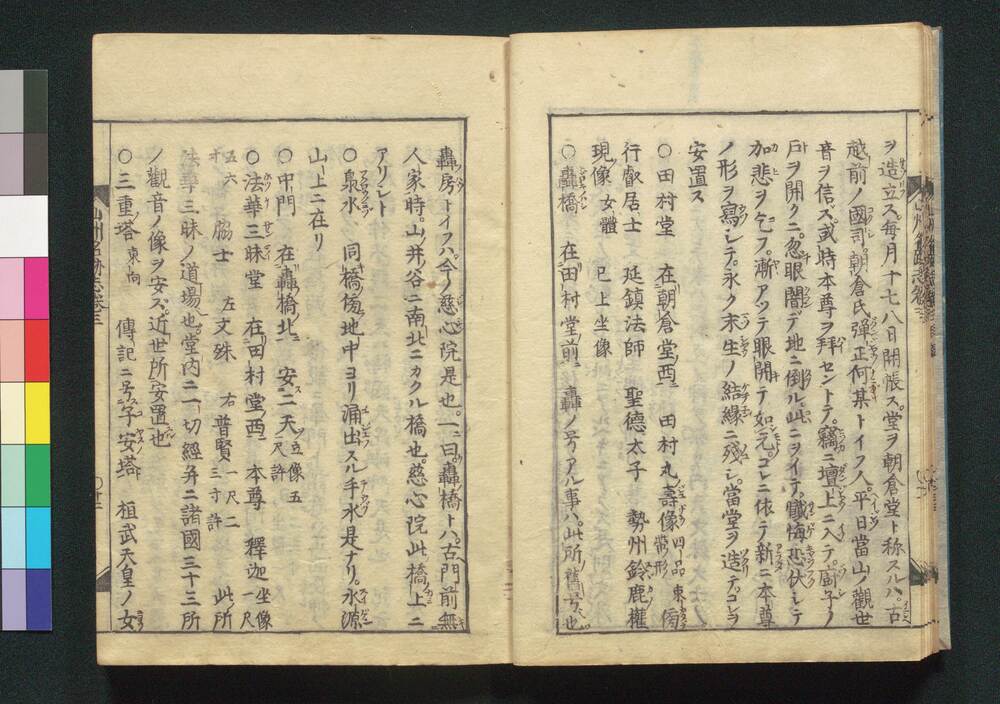 ヲ造立ス。毎月十七八日開帳ス。堂ヲ朝倉堂ト称スルハ。古
越前ノ國司。朝倉氏彈正何某トイフ人。平日當山ノ觀世
音ヲ信ス。或時本尊ヲ拜セントテ。竊ニ壇上ニ入テ。廚子ノ
戸ヲ開クニ。忽眼闇デ地ニ倒ル。此ニヲイテ。懺悔悲伏シテ
加悲ヲ乞フ。漸アツテ眼開テ如元。コレニ依テ新ニ本尊
ノ形ヲ寫シテ。永ク末生ノ結縁ニ殘シ。當堂ヲ造テ。コレヲ
安置ス
○田村堂 在朝倉堂西ニ 田村丸ノ壽像 四品束帶ノ形 傍
行叡居士 延鎮法師 聖德太子 勢州鈴鹿權
現像 女體 已上坐像
○轟橋 在田村堂前ニ 轟ノ号アル事ハ。此所ノ舊号ハ。也
轟房トイフハ。今ノ慈心院是也。一ニ曰。轟橋トハ。古門前無
人家時。山ノ井谷ニ南北ニカクル橋也。慈心院此橋ノ上ニ
アリシト
○泉水 同橋ノ傍地中ヨリ涌出スル手水是ナリ。水源
山上ニ在リ
○中門 在轟橋ノ北ニ 安ス二天ヲ 立像五尺許
○法華三昧堂 在田村堂ノ西ニ 本尊 釋迦 坐像一尺
五六寸 脇士 左文殊 右普賢 一尺二三寸許 此ノ所
法華三昧ノ道場也。堂内ニ一切經并ニ諸國三十三所
ノ觀音ノ像ヲ安ス。近世所安置也
○三重塔 東向 傳記ニ号ス子安塔ト 桓武天皇ノ女
山州名跡志卷三